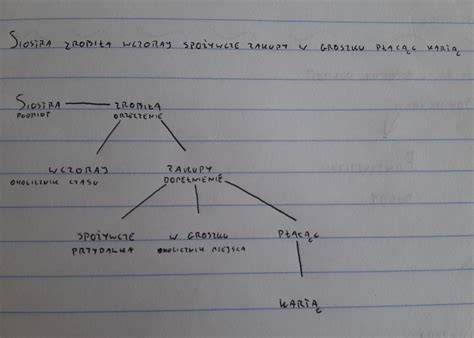 SIOSTRA ZROBIŁA WCZORAJ SPOŻYWCZE ZAKUPY W GROSZKU PŁACĄC KARTĄ
SIOSTRA ZROBIŁA
PODMIOT ORZECZENIE
WCZORAJ ZAKUPY
OKOLICZNIK CZASU DOPEŁNIENIE
SPOŻYWCZE W GROSZKU PŁACĄC
PRZYDAWKA OKOLICZNIK MIEJSCA
KARTĄ